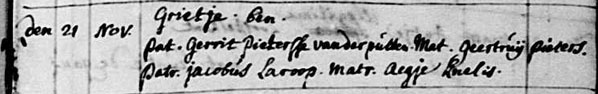 den 21 Nov. Grietje. ben.
Pat. Gerrit Pietersse van der putten. Mat. geertruij pieters.
Patr. jacobus Laroop. Matr. Aegje Knelis.